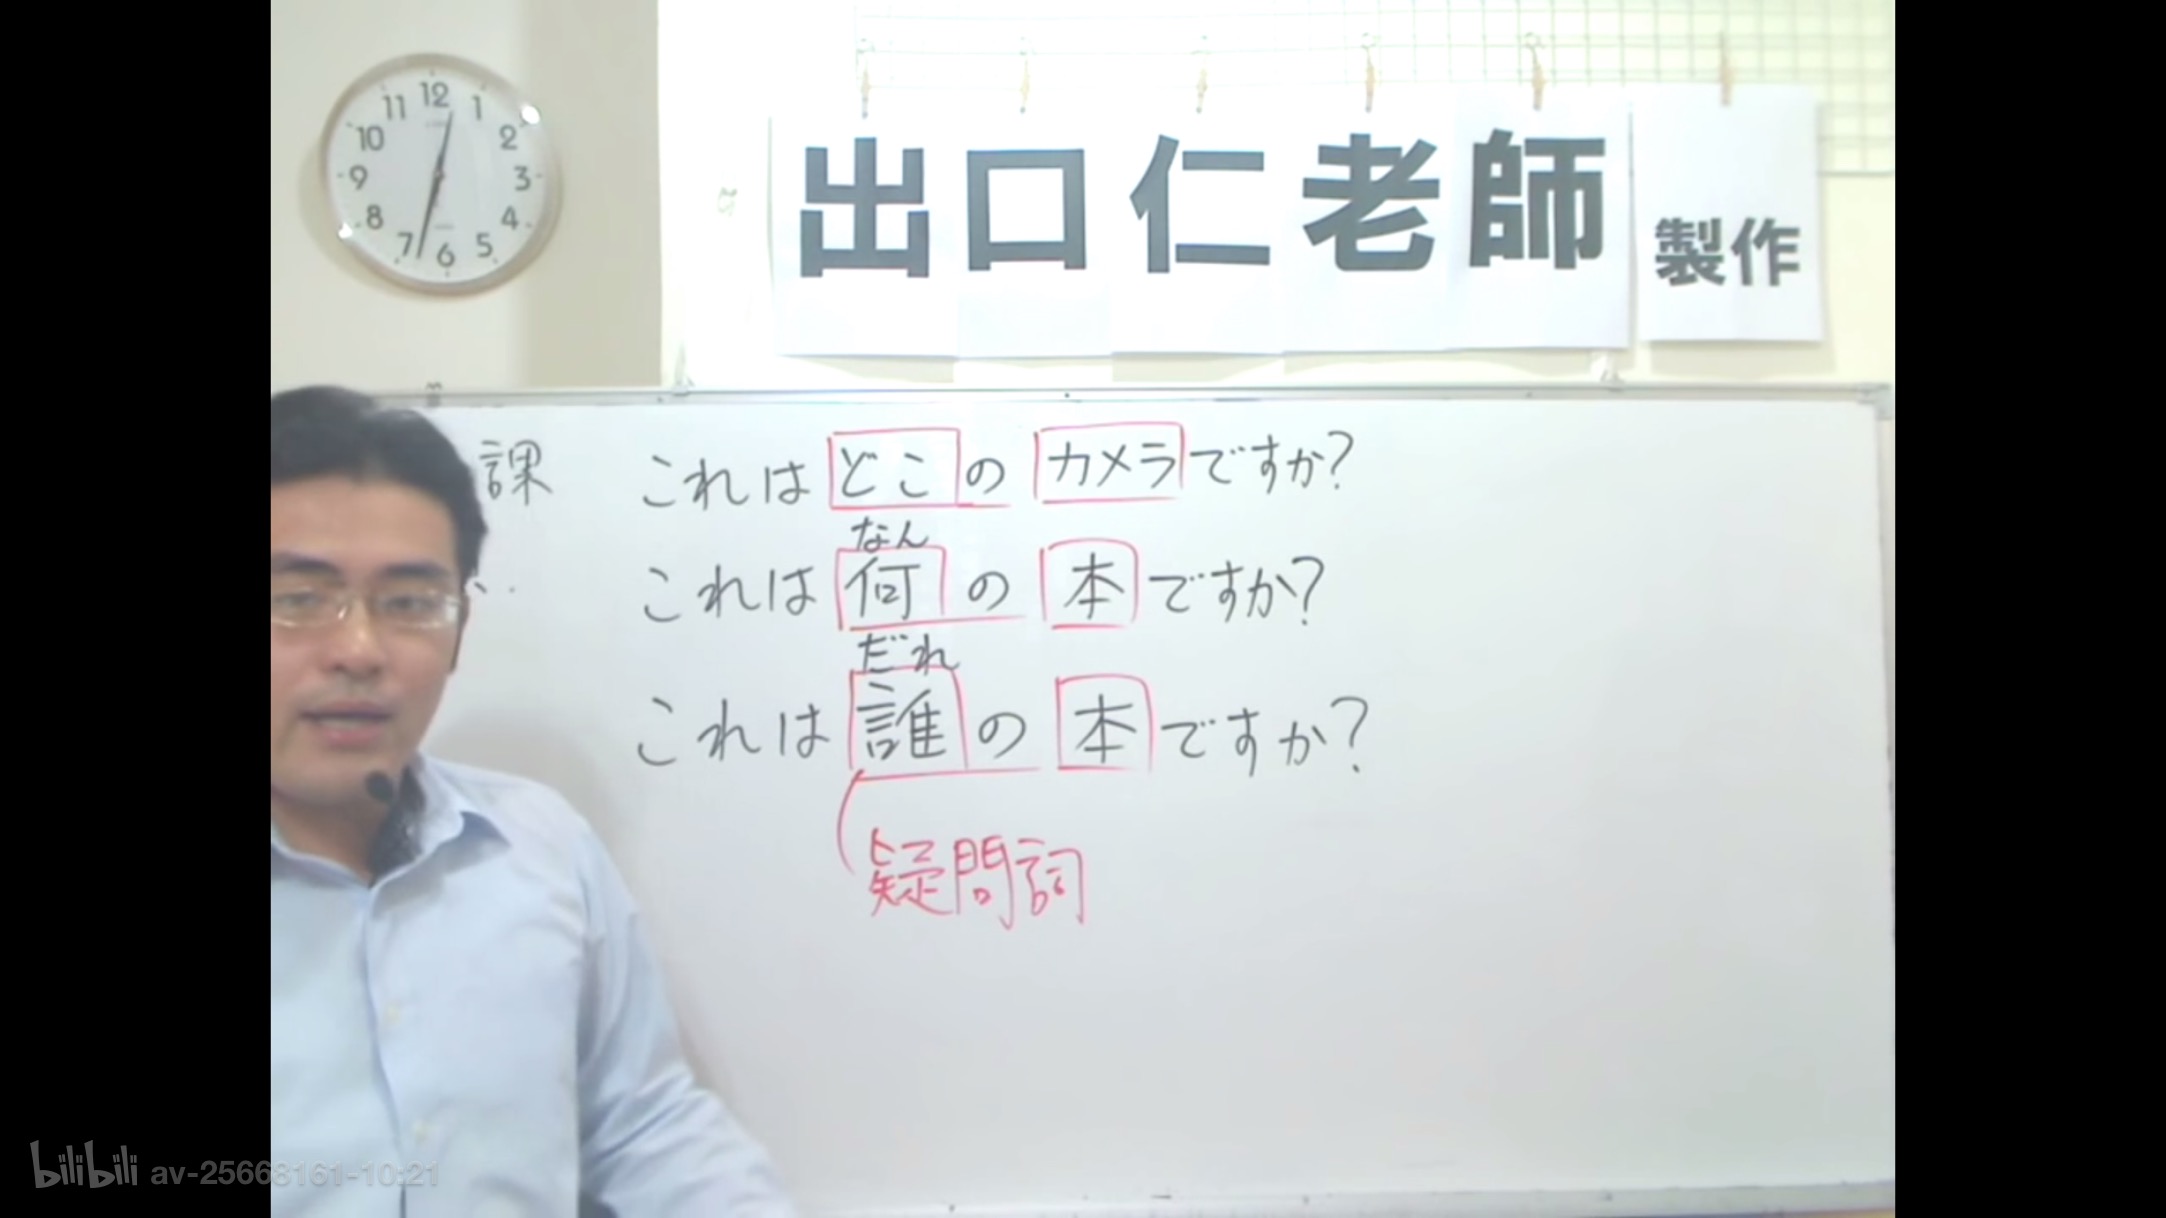 12
11 1
10 2
9 3
8 4
7 5
6
出口仁老師 製作
課 これは どこ の カメラ ですか?
なん
これは 何 の 本 ですか?
だれ
これは 誰 の 本 ですか?
疑問詞
bilibili av-25668161-10:21